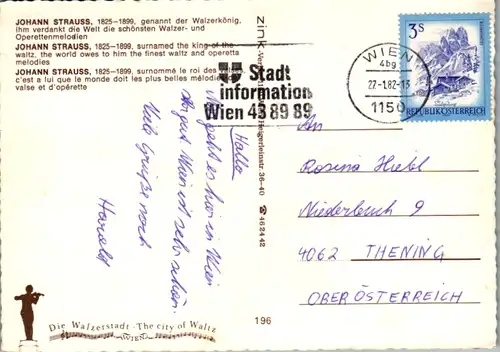 JOHANN STRAUSS, 1825-1899, genannt der Walzerkönig,
ihm verdankt die Welt die schönsten Walzer- und
Operettenmelodien
JOHANN STRAUSS, 1825-1899, surnamed the king of the
waltz, the world owes to him the finest waltz and operetta
melodies
JOHANN STRAUSS, 1825-1899, surnommé le roi des
c'est a lui que le monde doit les plus belles mélodies
valse et d'opérette
Stadt
information
Wien 43 89 89
WIEN
4bg
27.-1.82-13
1150
3S
REPUBLIK ÖSTERREICH
Hallo
geht es hier in Wien
gut. Wien ist sehr schön.
Viele Grüße noch
Harald
zink
Heigerleinstr. 36-40
☎ 46 24 42
196
An
Rosina Hiebl
Niederbuch 9
4062 THENING
OBERÖSTERREICH
Die Walzerstadt · The city of Waltz
WIEN